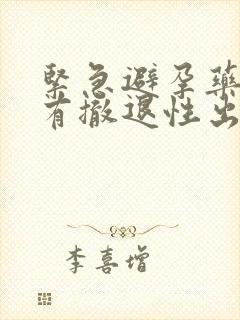 緊急避孕藥
有撤退性出
李喜增